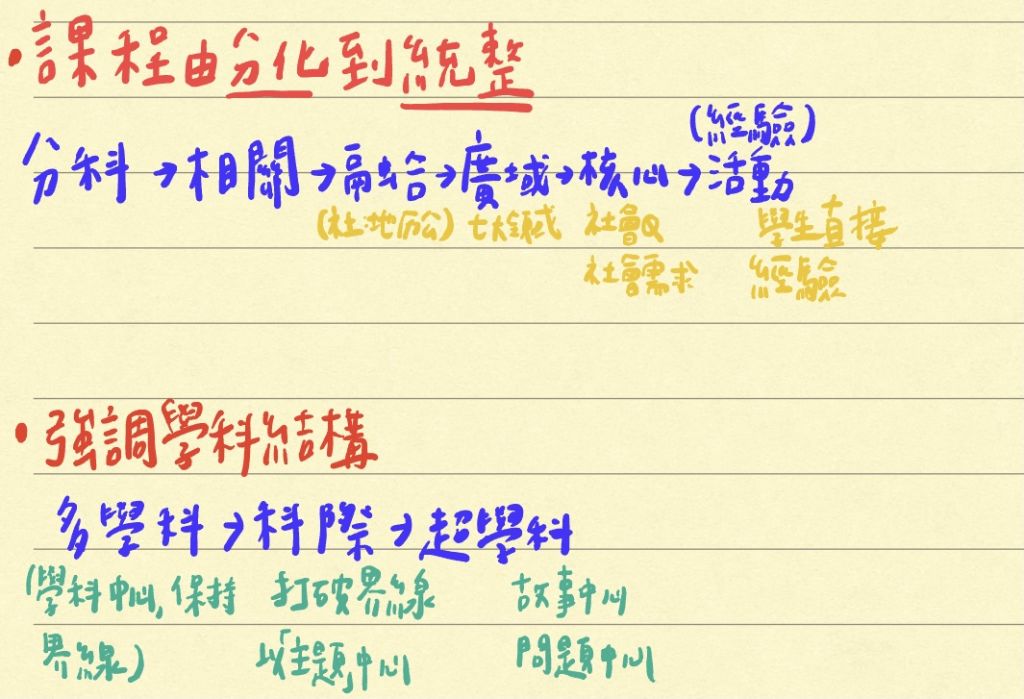 •課程由分化到統整
(經驗)
分科→相關→融合→廣域→核心→活動
(社:地历公) 七大領域 社會Q 學生直接
社會需求 經驗
•強調學科結構
多學科→科際→超學科
(學科中心,保持 打破界線 故事中心
界線) 以「主題」中心 問題中心